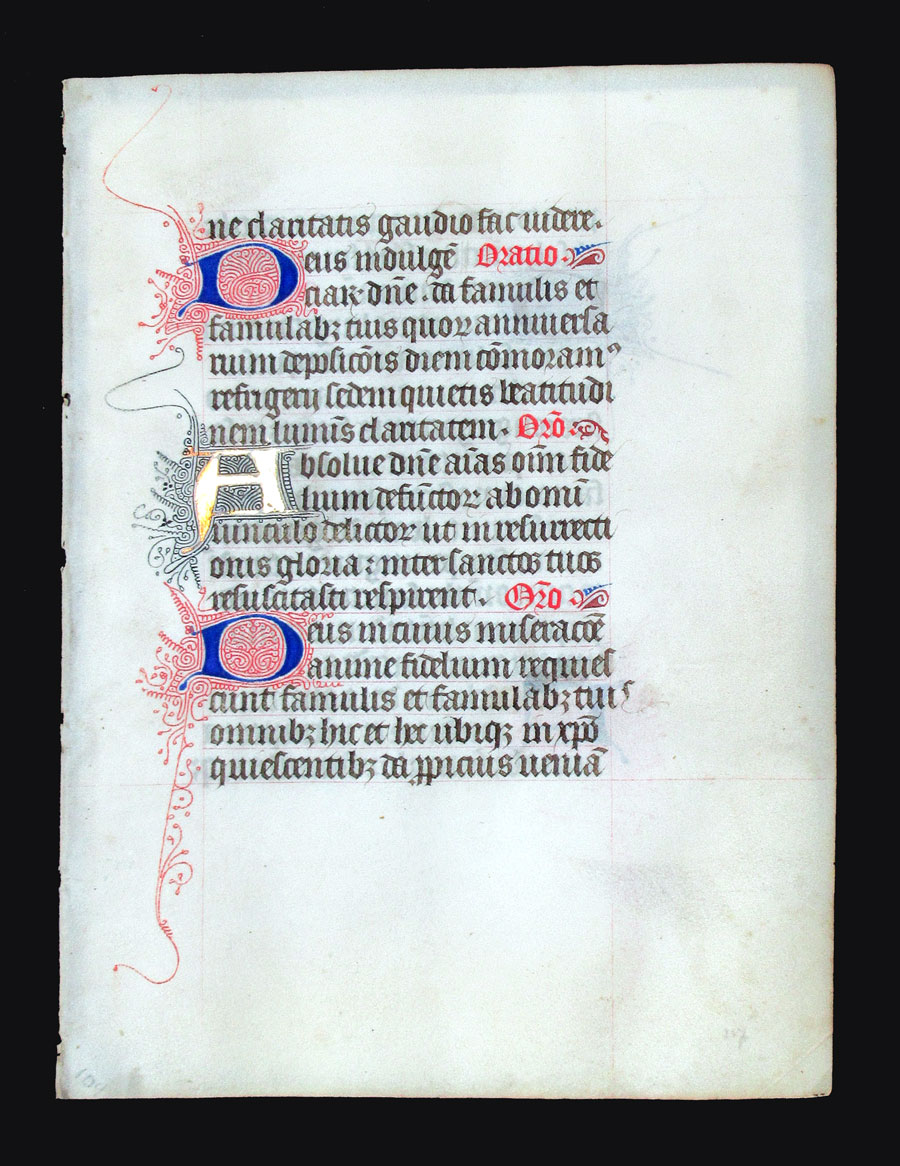 ne claritatis gaudio fac uidere.
Deus indulgē Oratio.
ciaꝝ dn̄e. da famulis et
famulabꝫ tuis quoꝝ anniuersa
rium deposicōis diem cōmoramꝰ
refrigerij sedem quietis beatitudi
nem lumīs claritatem. Orō.
Absolue dn̄e aīas oīm fide
lium defūctoꝝ ab omī
uinculo delictoꝝ ut in resurrecti
onis gloria: inter sanctos tuos
resuscitasti respirent. Orō
Deus in cuius miseracōe
anime fidelium requies
cunt famulis et famulabꝫ tuis
omnibꝫ hic et hec ubiqꝫ in xpō
quiescentibꝫ da ꝓpicius ueniā